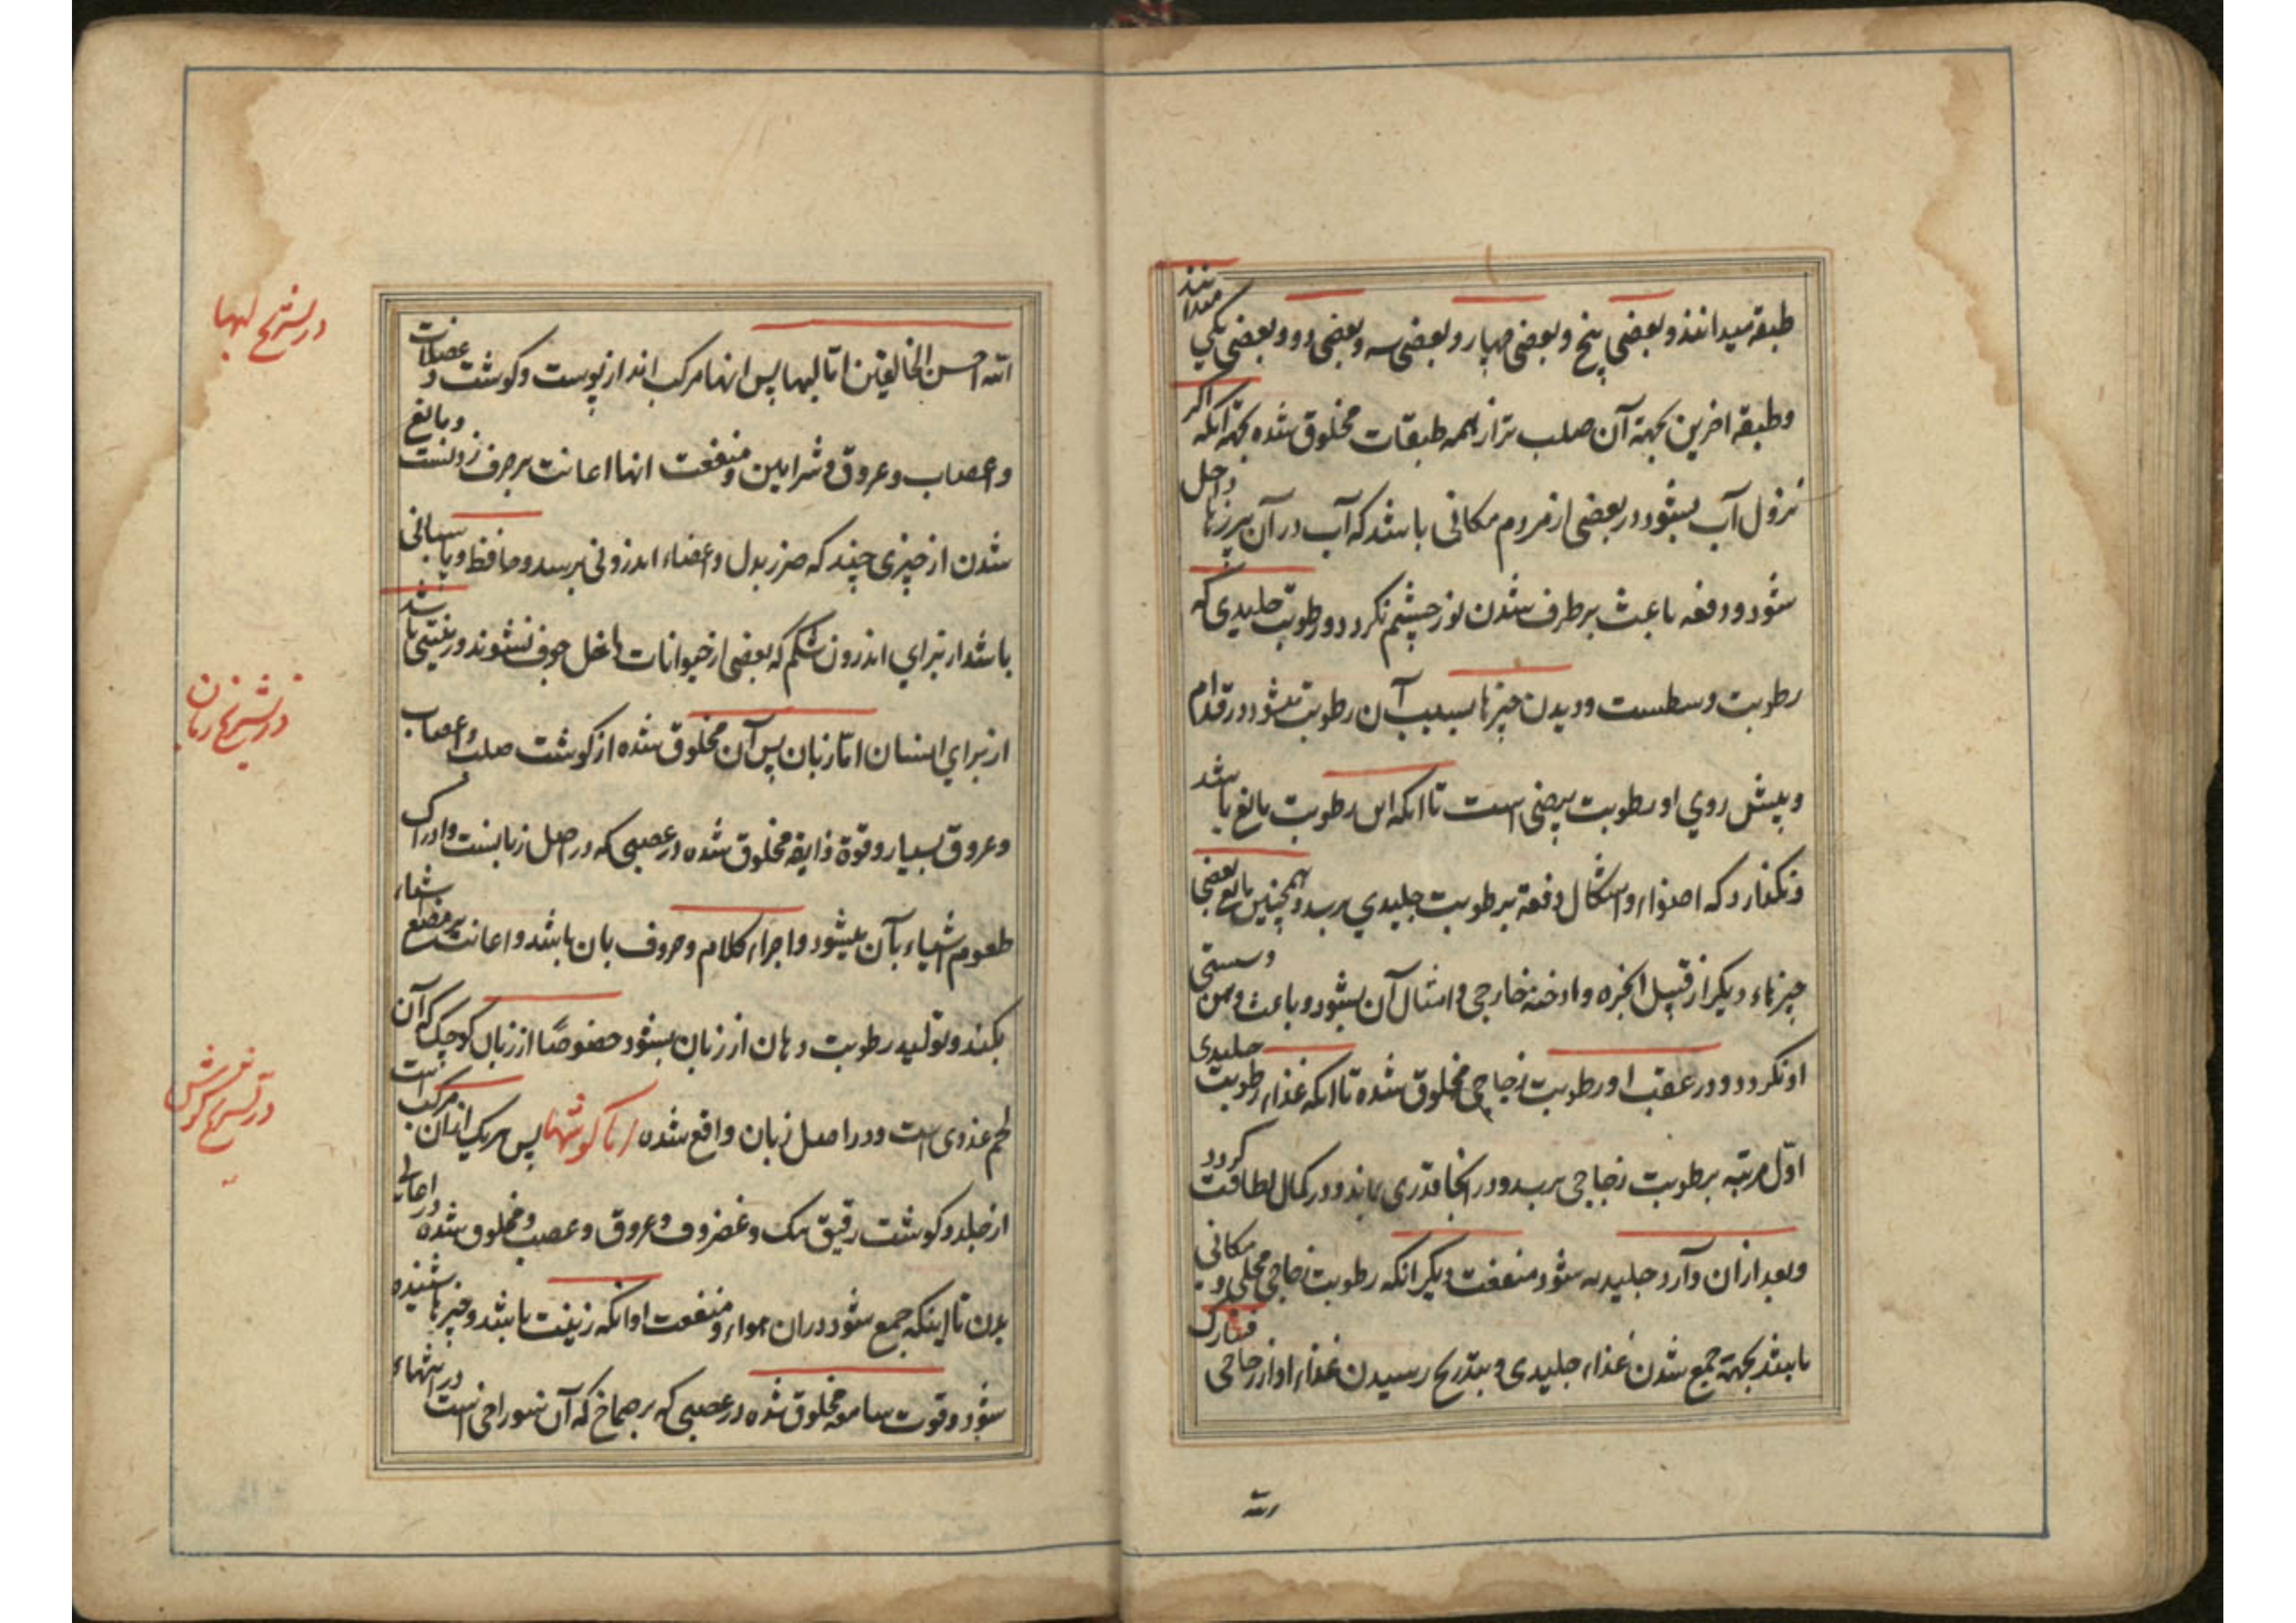 طبقه میدانند و بعضی پنج و بعضی چهار و بعضی سه و بعضی دو و بعضی یکی میدانند
و طبقه اخرین بجهة آن صلب تر از همه طبقات مخلوق شده بجهة انکه اکر
نزول آب بشود در بعضی از مردم مکانی باشد که آب در آن بریزد تا داخل
شود و دفعه باعث برطرف شدن نور چشم نکردد و رطوبت جلیدی که
رطوبت وسطست و دیدن چیزها بسبب آن رطوبت میشود در قدام
و پیش روی او رطوبت بیضی است تا انکه این رطوبت مانع باشد
و نکذارد که اضواء و اشکال دفعة برطوبت جلیدی برسد و همچنین مانع بعضی
چیزهاء دیکر از قبیل ابخره و ادخنه خارجی و امثال آن بشود و باعث وهن و سستی
او نکردد و در عقب او رطوبت زجاجی مخلوق شده تا انکه غذاء رطوبت جلیدی
اوّل مرتبه برطوبت زجاجی برسد و در انجا قدری بماند و در کمال لطافت کردد
و بعد ازان وارد جلیدیه شود و منفعت دیکر انکه رطوبت زجاجی محلی و مکانی
باشد بجهة جمع شدن غذاء جلیدی و بتدریج رسیدن غذاء او از زجاجی فتبارک
الله احسن الخالقین امّا لبها پس انها مرکب اند از پوست و کوشت و عضلات
و اعصاب و عروق و شرایین و منفعت انها اعانت بر حرف زدنست و مانع
شدن از چیزی چند که ضرر بدل و اعضاء اندرونی برسد و حافظ و پاسبانی
باشد از برای اندرون شکم که بعضی از حیوانات داخل جوف نشوند و زینتی باشد
از برای انسان امّا زبان پس آن مخلوق شده از کوشت صلب و اعصاب
و عروق بسیار و قوة ذایقه مخلوق شده در عصبی که در اصل زبانست و ادراک
طعوم اشیاء بآن میشود و اجراء کلام و حروف بان باشد و اعانت بر مضغ
بکند و تولید رطوبت دهان از زبان بشود خصوصًا از زبان کوچک که آن
لحم غددی است و در اصل زبان واقع شده امّا کوشها پس هر یک ازان مرکب است
از جلد و کوشت رقیق و غضروف و عروق و عصب و مخلوق شده در اعالی
بدن تا اینکه جمع شود دران هواء و منفعت او انکه زینت باشد و چیزها شنیده
شود و قوت سامعه مخلوق شده در عصبی که بر صماخ که آن سوراخی است در انتهاء
در تشریح لبها
در تشریح زبان
در تشریح کوش